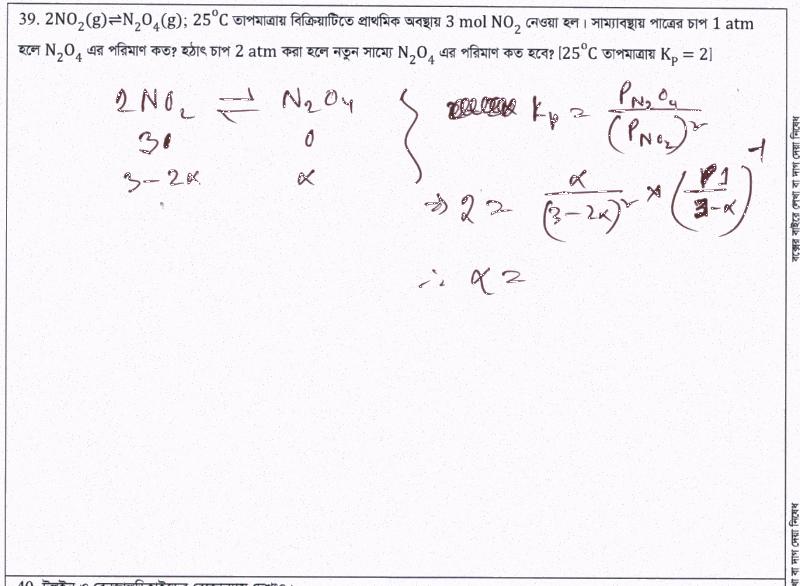 39. 2NO₂(g)⇌N₂O₄(g); 25°C তাপমাত্রায় বিক্রিয়াটিতে প্রাথমিক অবস্থায় 3 mol NO₂ নেওয়া হল। সাম্যাবস্থায় পাত্রের চাপ 1 atm
হলে N₂O₄ এর পরিমাণ কত? হঠাৎ চাপ 2 atm করা হলে নতুন সাম্যে N₂O₄ এর পরিমাণ কত হবে? [25°C তাপমাত্রায় Kₚ = 2]
2NO₂ ⇌ N₂O₄
Kₚ = P_N₂O₄ / (P_NO₂)²
3 0
3-2α α
⇒ 2 = α/(3-2α)² × (1/(3-α))⁻¹
∴ α =
বক্সের বাইরে লেখা বা দাগ দেয়া নিষেধ
বা দাগ দেয়া নিষেধ